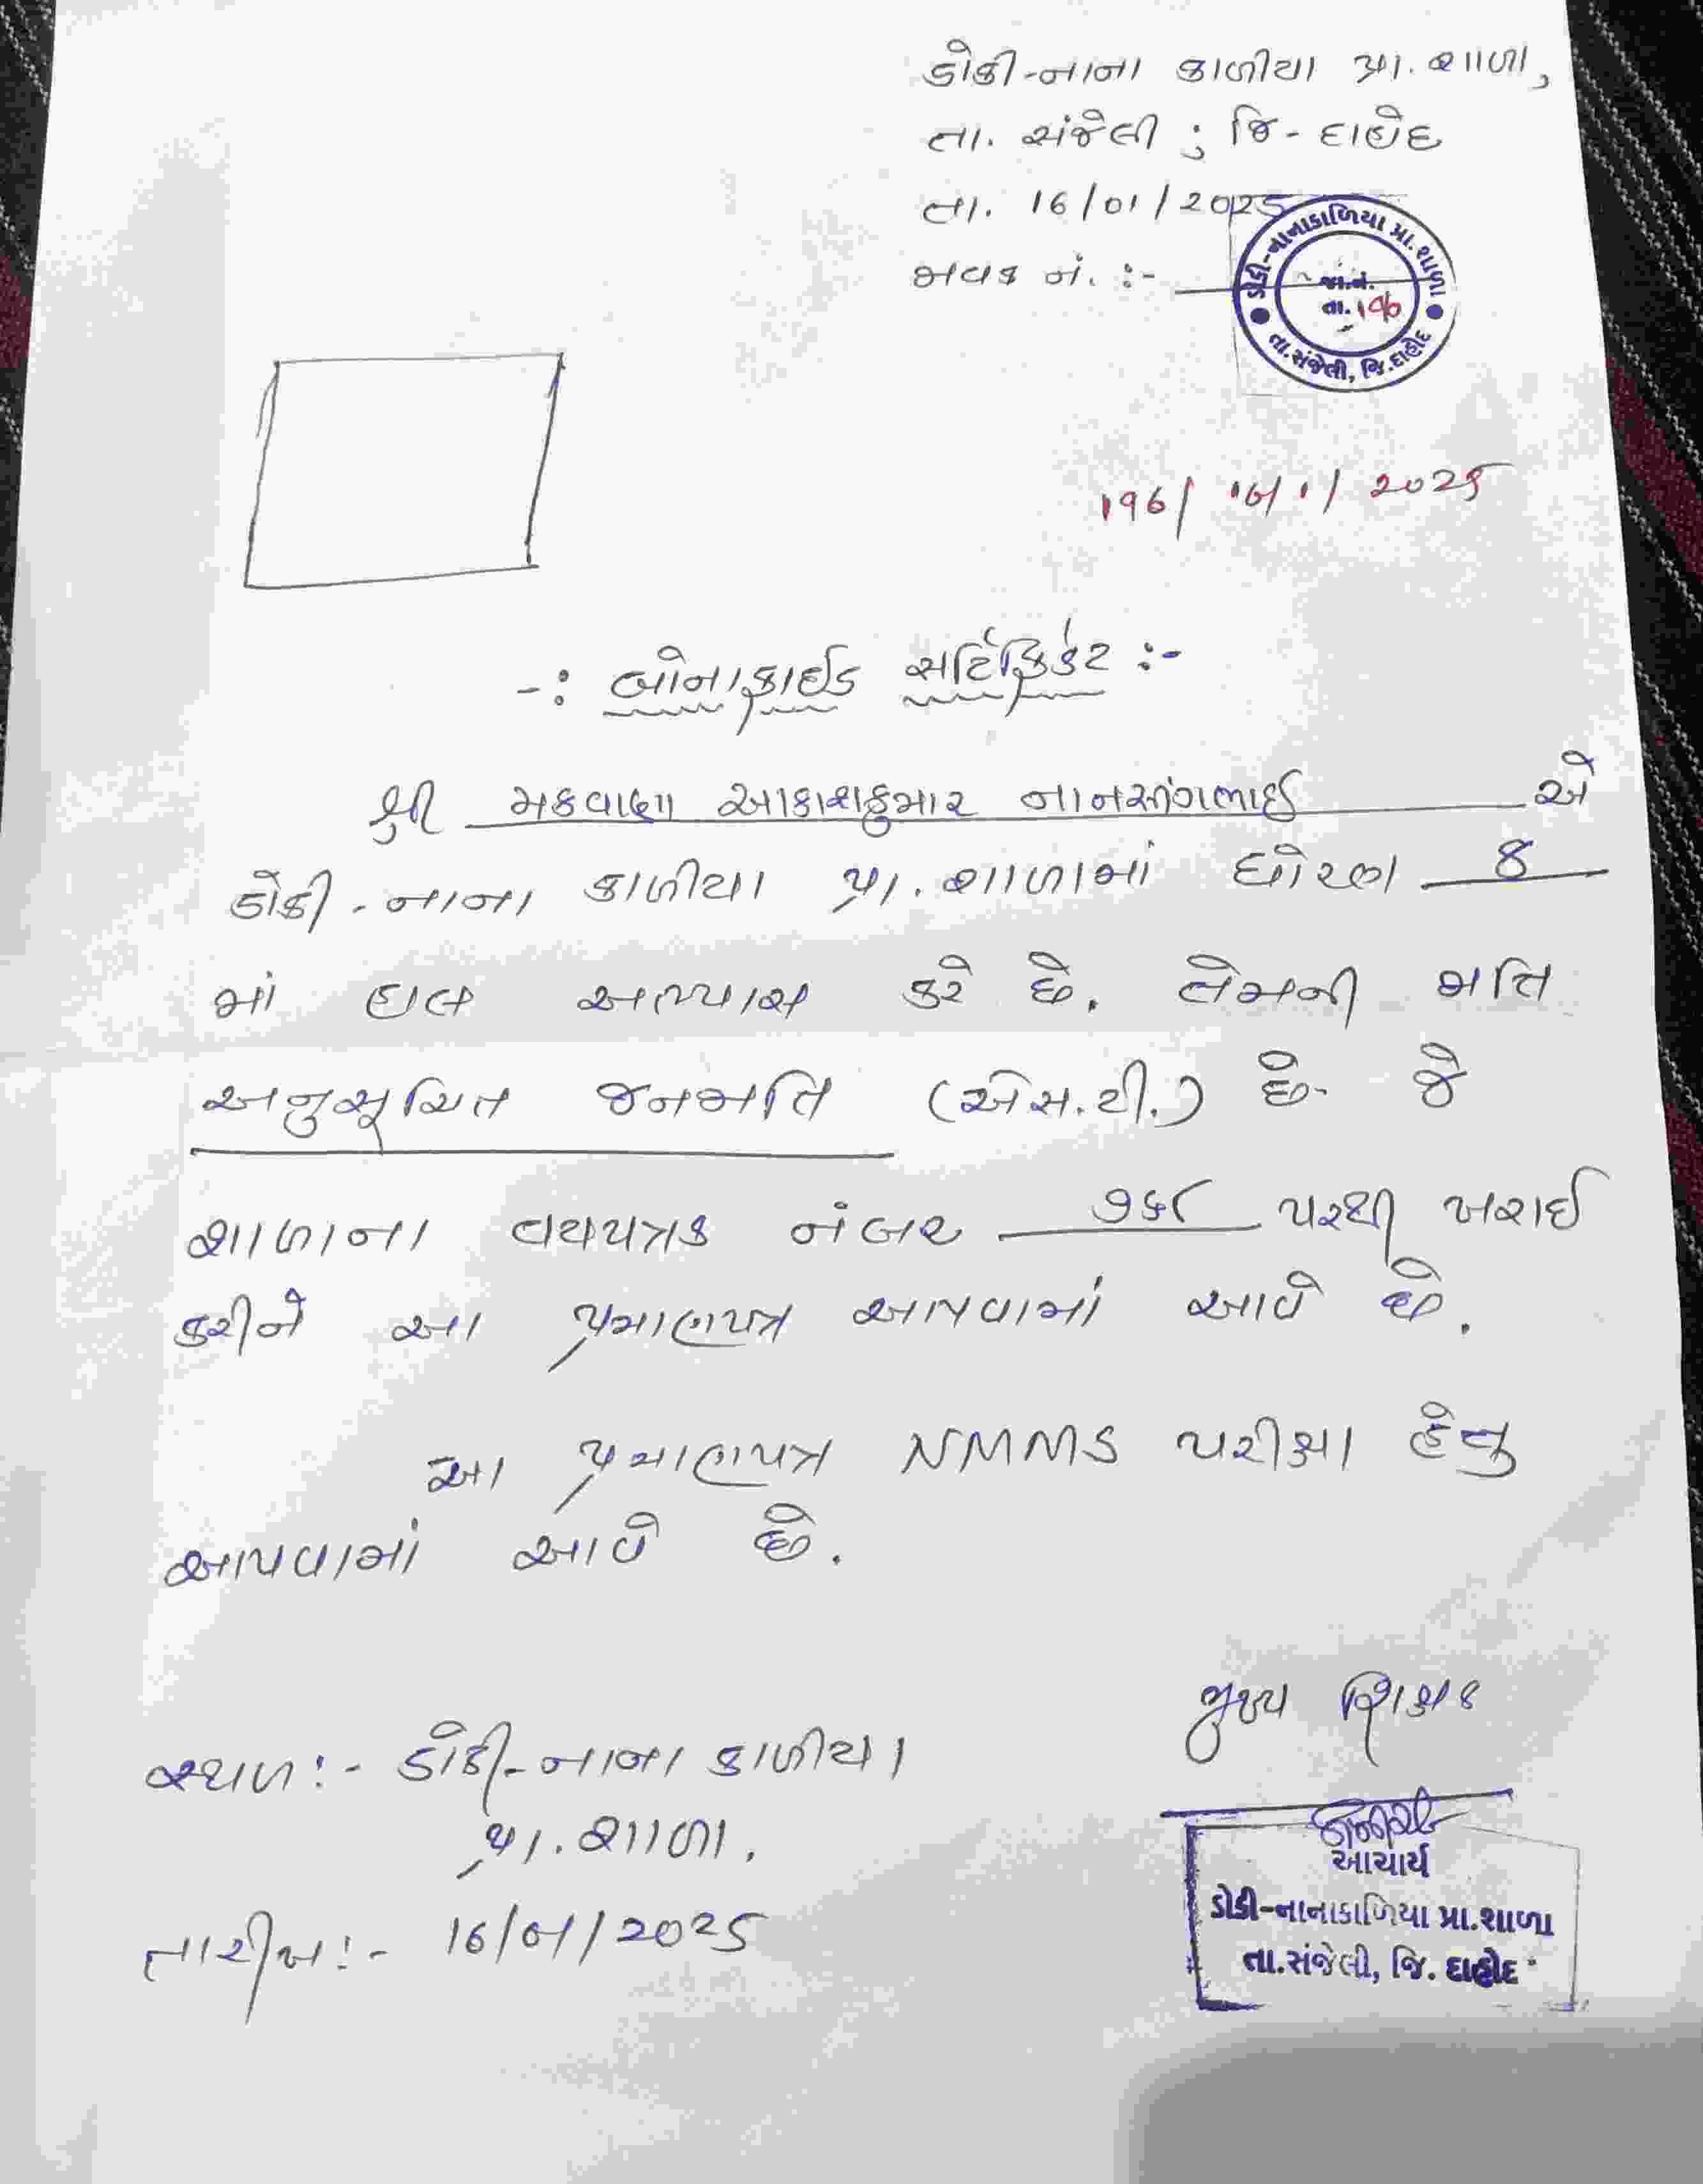 ડોકી-નાના કાળીયા પ્રા. શાળા,
તા. સંજેલી ; જિ- દાહોદ
તા. 16/01/2025
જાવક નં. :-
ડોકી-નાનાકાળિયા પ્રા. શાળા
જા.નં.
તા.
તા.સંજેલી, જિ.દાહોદ
૧૧6/ 16/1/2025
-: બોનાફાઈડ સર્ટિફિકેટ :-
શ્રી મકવાણા આકાશકુમાર નાનસીંગભાઈ એ
ડોકી-નાના કાળીયા પ્રા. શાળામાં ધોરણ 8
માં હાલ અભ્યાસ કરે છે. તેમની જાતિ
અનુસૂચિત જનજાતિ (એસ.ટી.) છે. જે
શાળાના વયપત્રક નંબર ૭૬૮ પરથી ખરાઈ
કરીને આ પ્રમાણપત્ર આપવામાં આવે છે.
આ પ્રમાણપત્ર NMMS પરીક્ષા હેતુ
આપવામાં આવે છે.
મુખ્ય શિક્ષક
સ્થળ :- ડોકી-નાના કાળીયા
પ્રા. શાળા.
તારીખ :- 16/01/2025
આચાર્ય
ડોકી-નાનાકાળિયા પ્રા.શાળા
તા.સંજેલી, જિ. દાહોદ